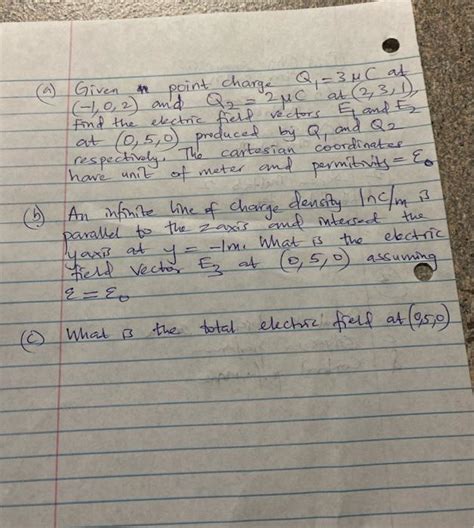 (a) Given point charge Q₁ = 3 μC at
(-1, 0, 2) and Q₂ = 2 μC at (2, 3, 1),
Find the electric field vectors E₁ and E₂
at (0, 5, 0) produced by Q₁ and Q₂
respectively. The cartesian coordinates
have unit of meter and permitivity = ε₀
(b) An infinite line of charge density 1nC/m is
parallel to the z axis and intersed the
y axis at y = -1m. What is the electric
field vector E₃ at (0, 5, 0) assuming
ε = ε₀
(c) What is the total electric field at (0,5,0)